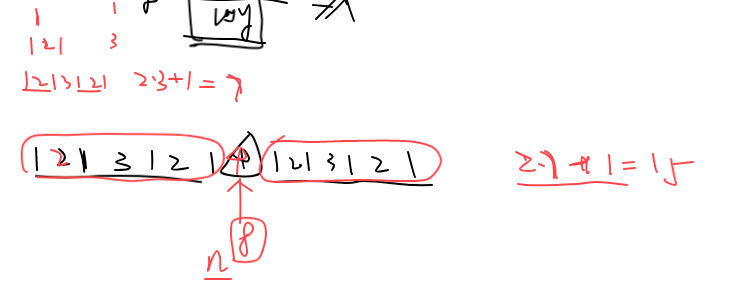 1 1
121 3
1213121 2·3+1=7
1213121 4 1213121 2·7+1=15
n